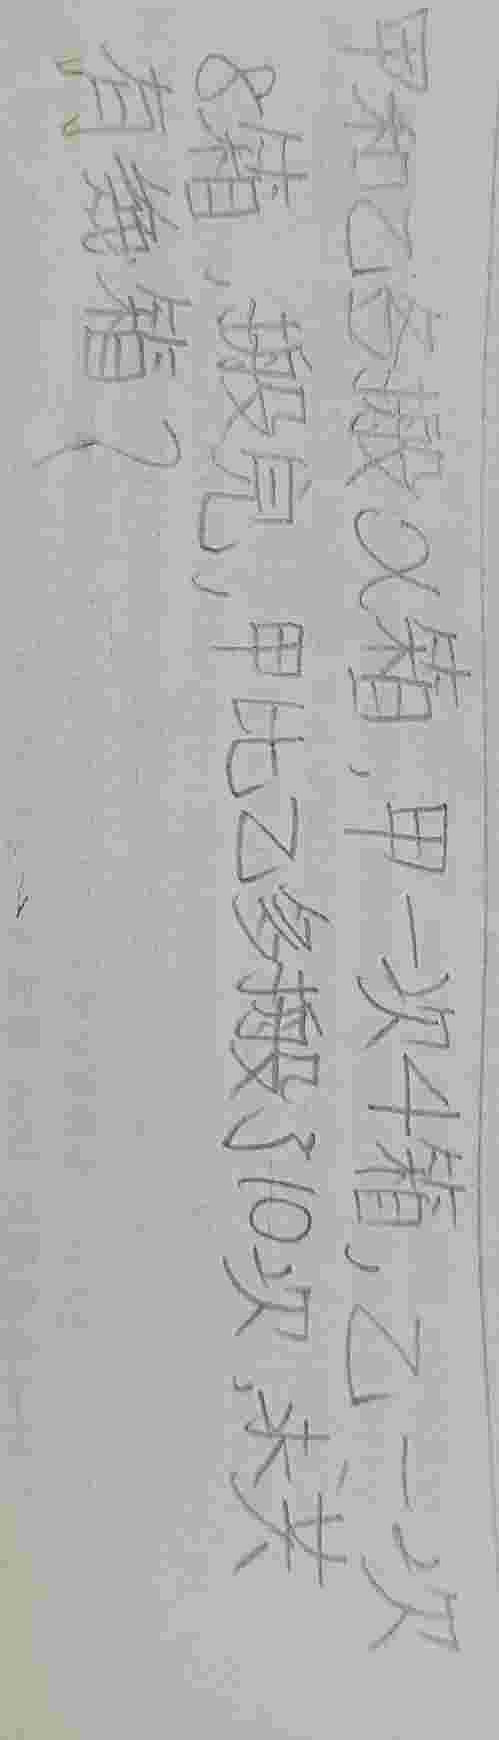 甲和乙各搬x箱,甲一次4箱,乙一次
8箱,搬完,甲比乙多搬了10次,求共
有几箱?